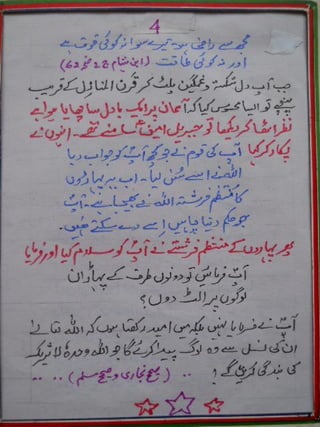 4
مجھ سے راضی ہو۔ تیرے سوا نہ کوئی قوت ہے
اور نہ کوئی طاقت (ابن ہشام ج 2 صفحہ 62)
جب آپ دل شکستہ و غمگین پلٹ کر قرن المنازل کے قریب
پہنچے تو ایسا محسوس کیا کہ آسمان پر ایک بادل سا چھایا ہوا ہے
نظر اٹھا کر دیکھا تو جبریل امین سامنے تھے۔ انہوں نے
پکار کر کہا آپ کی قوم نے جو کچھ آپ کو جواب دیا
اللہ نے اسے سُن لیا۔ اب یہ پہاڑوں
کا منتظم فرشتہ اللہ نے بھیجا ہے۔ آپ
جو حکم دینا چاہیں اسے دے سکتے ہیں۔
پھر پہاڑوں کے منتظم فرشتے نے آپ کو سلام کیا اور فرمایا
آپ فرمائیں تو دونوں طرف کے پہاڑ ان
لوگوں پر الٹ دوں؟
آپ نے فرمایا نہیں بلکہ میں امید رکھتا ہوں کہ اللہ تعالے
ان کی نسل سے وہ لوگ پیدا کرے گا جو اللہ وحدہٗ لا شریک
کی بندگی کریں گے! (صحیح بخاری و صحیح مسلم)